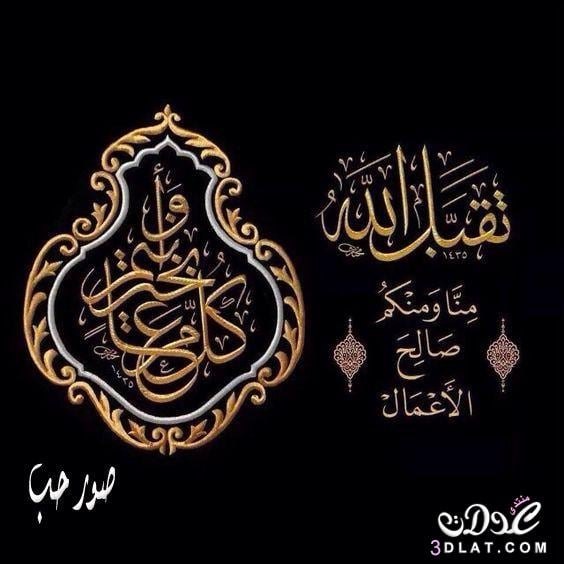 تقبل الله
١٤٣٥
مِنَّا وَمِنْكُم
صَالِحَ
الأَعْمَال
كل عام وأنتم بخير
١٤٣٥
صور حب
منتدى
عدلات
3DLAT.COM